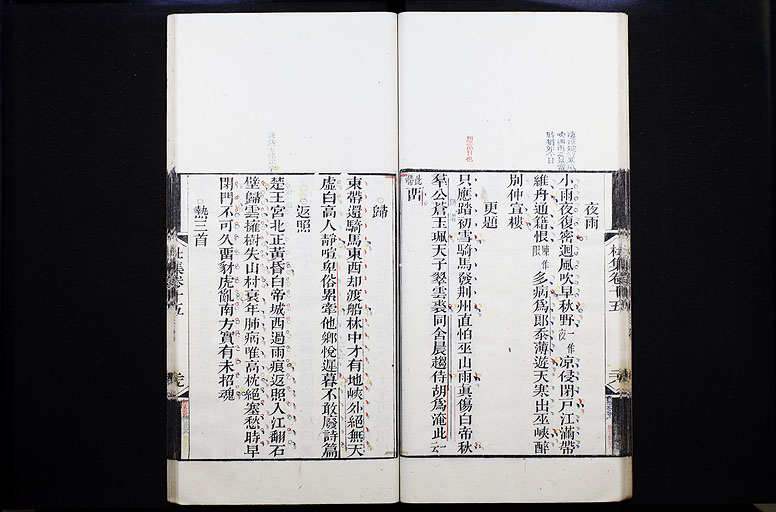 夜雨
小雨夜復密迴風吹早秋野一作夜涼侵閉戶江滿帶
維舟通籍恨陳作限多病爲郎忝薄遊天寒出巫峽醉
別仲宣樓
更題
只應踏初雪騎馬發荆州直怕巫山雨眞傷白帝秋
羣公蒼玉珮天子翠雲裘同舍晨趨侍胡爲淹此云
此留
歸
束帶還騎馬東西却渡船林中才有地峽外絕無天
虛白高人靜喧卑俗累牽他鄉悅遲暮不敢廢詩篇
返照
楚王宮北正黃昏白帝城西過雨痕返照入江翻石
壁歸雲擁樹失山村衰年肺病唯高枕絕塞愁時早
閉門不可久留豺虎亂南方實有未招魂
熱三首
杜集卷十五